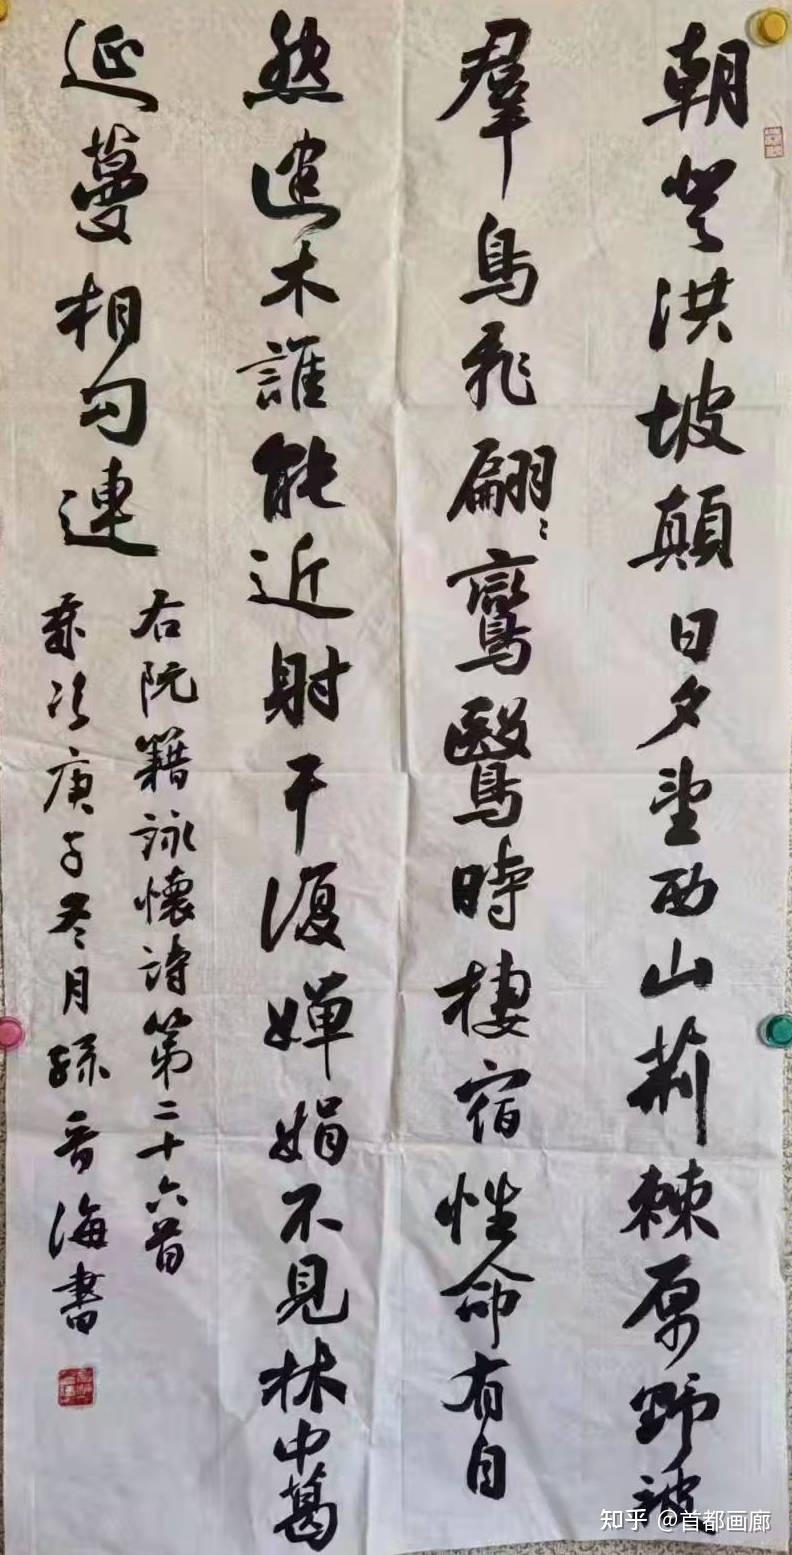 朝登洪坡顛日夕望西山荊棘原野被
羣鳥飛翩〻鸞鷖時棲宿性命有自
然建木誰能近射干復嬋娟不見林中葛
延蔓相勾連
右阮籍詠懷詩第二十六首
歲次庚子冬月孫音海書
知乎 @首都画廊